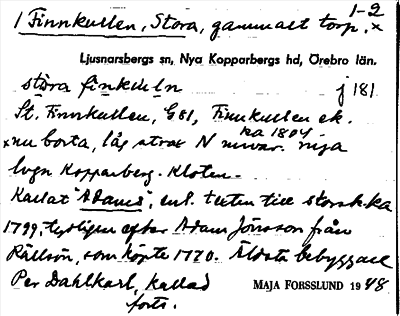 1-2
1 Finnkullen, Stora, gammalt torp. x
Ljusnarsbergs sn, Nya Kopparbergs hd, Örebro län.
stòra finkuln j 181
St. Finnkullen, G81, Finnkullen ek.
ka 1864
x nu borta, låg strax N nuvar. nya
lvgn Kopparberg - Kloten -
Kallat "Adams", enl. texten till storsk.ka
1799, tydligen efter Adam Jönsson från
Rällsön, som köpte 1770. Äldsta bebyggare
Per Dahlkarl, kallad
forts.
MAJA FORSSLUND 1948